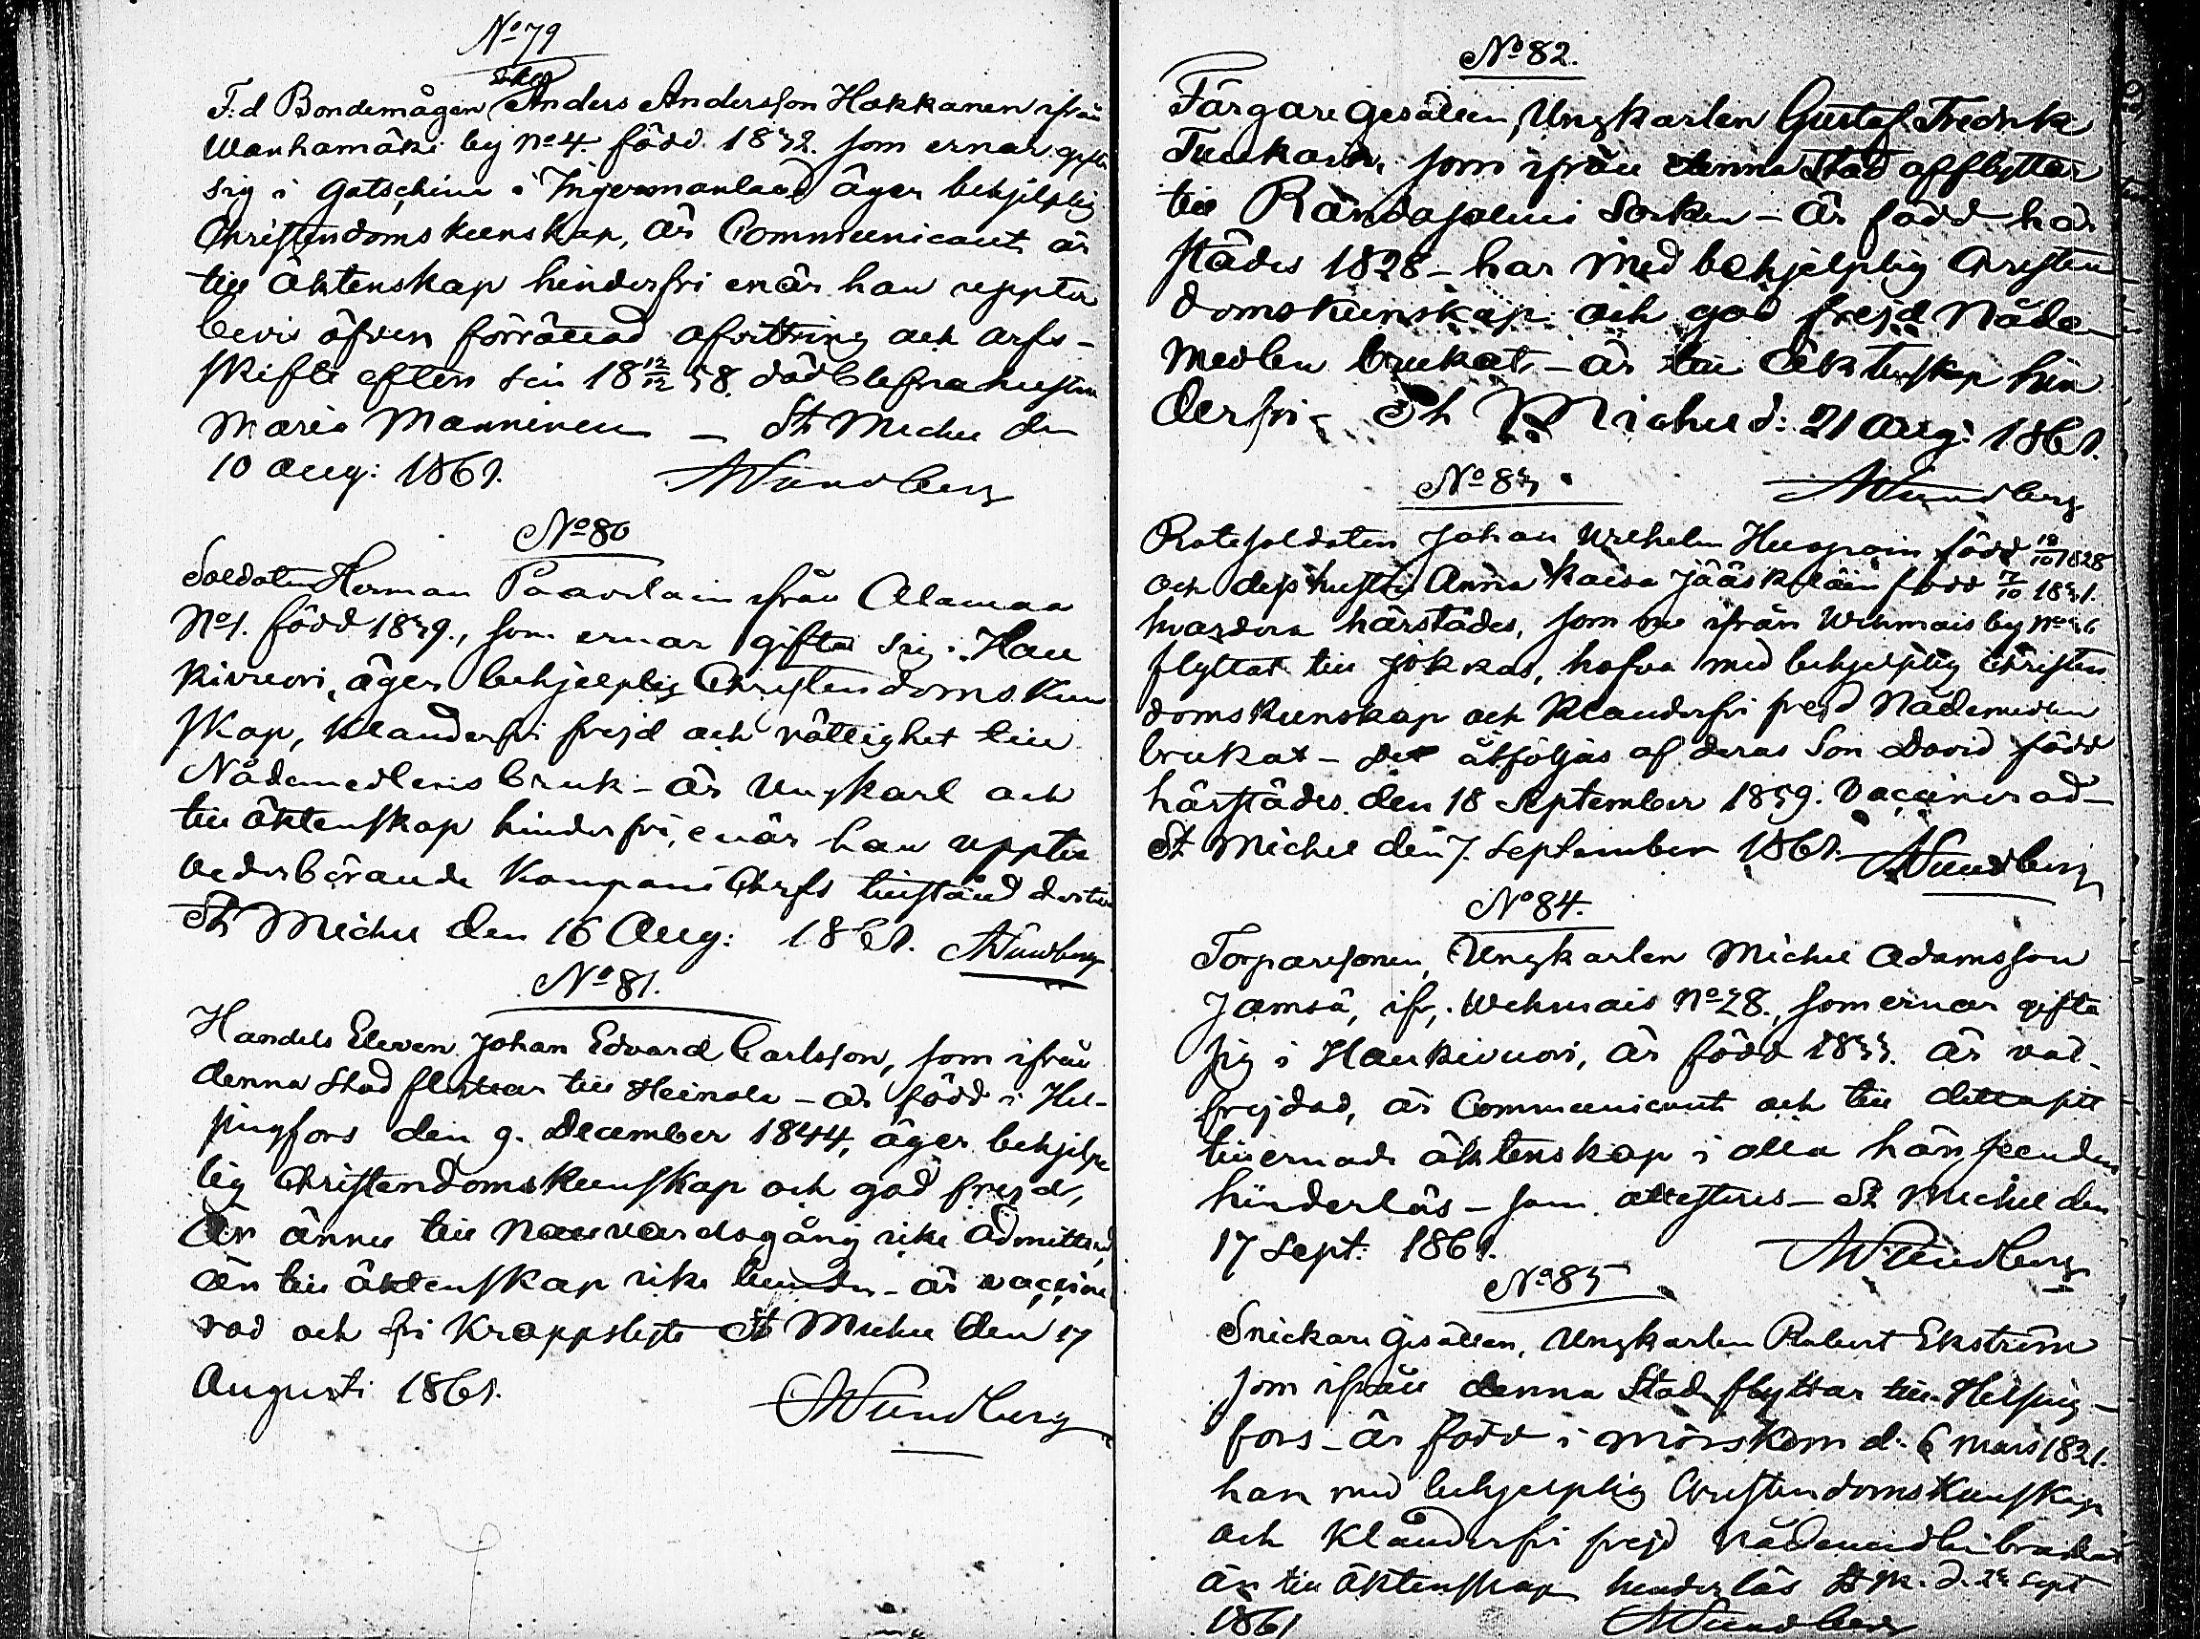 No 79
F.d Bondemågen Anders Andersson Hakkanen ifrån
Wanhamäki by No 4. född 1832. som ernar gifta
sig i Gatschina i Ingermanland äger behjelplig
Christendomskunskap, är Communicant är
till äktenskap hinderfri enär han uppter
bevis öfver förrättad afvittring och arfs-
skifte efter sin 18 12/12 58. död blefna hustru
Maria Manninen – St Michel den
10 Aug: 1861. Wundberg
No 80
Soldaten Herman Paavilain ifrån Alamaa
No 1. född 1839., som ernar gifta sig i Hau
kivuori, äger behjelplig Christendomskun
skap, klanderfri frejd och rättighet till
Nådemedlens bruk – är ungkarl och
till äktenskap hinderfri, enär han uppter
vederbörande Kompani Chefs tillstånd dertill
St Michel den 16 Aug: 1861. Wundberg
No 81.
Handels Eleven Johan Edvard Carlsson, som ifrån
denna Stad flyttar till Heinola – är född i Hel-
singfors den 9. December 1844, äger behjelp
lig Christendomskunskap och god frejd,
är ännu till Nattvardsgång icke admitterad
än till äktenskap icke bunden – är vaccine
rad och fri kroppslyte St Michel den 17
Augusti 1861. Wundberg
No 82.
Färgare Gesällen, Ungkarlen Gustaf Fredrik
som ifrån denna Stad afflyttar
till Randasalmi Socken – är född här
städes 1828 – har med behjelplig Christen
domskunskap och god frejd Nåde-
medlen brukat – är till äktenskap hin
derfri – St Michel d: 21 Aug: 1861.
Wundberg
No 83
Rotesoldaten Johan Wilhelm född 18/10 1828
och dess hustru Anna Kaisa Jääskeläin född 7/10 1831.
hvardera härstädes, som nu ifrån Wehmais by No 36
flyttat till Jokkas, hafva med behjelplig Christen
domskunskap och klanderfri frejd Nådemedlen
brukat – De åtföljas af deras Son David född
härstädes den 18 September 1859. Vaccinerad –
St Michel den 7. September 1861. Wundberg
No 84.
Torparesonen, Ungkarlen Michel Adamsson
Jämsä, ifr. Wehmais No 28., som ernar gifta
sig i Haukivuori, är född 1833. är väl-
frejdad, är Communicant och till
tillernade äktenskap i alla hänseenden
hinderlös – som attesteras – St Michel den
17 Sept: 1861. Wundberg
No 85
Snickare Gesällen, Ungkarlen Robert Ekström
som ifrån denna Stad flyttar till Helsing-
fors – är född i Mörskom d: 6 Mars 1821.
har med behjelplig Christendomskunskap
och klanderfri frejd Nådemedlen brukat
är till äktenskap hinderlös St M. d. 24 Sept
1861 Wundberg